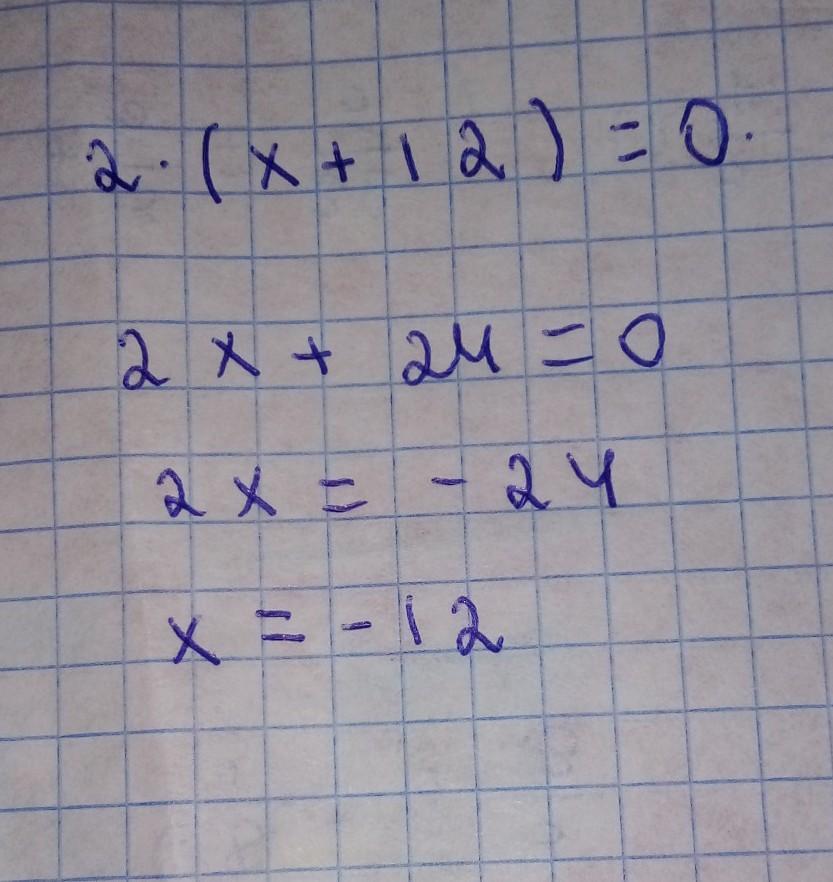 2·(x+12)=0.
2x+24=0
2x=-24
x=-12